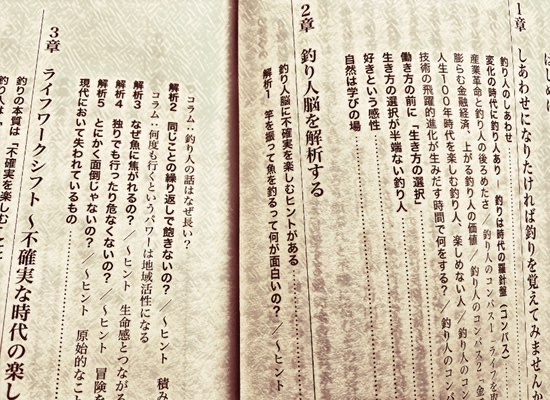 はじめ
1章 しあわせになりたければ釣りを覚えてみませんか
釣り人のしあわせ
変化の時代に釣り人あり 釣りは時代の羅針盤（コンパス）
産業革命と釣り人の後ろめたさ／釣り人のコンパス1「ライフを取
膨らむ金融経済、上がる釣り人の価値／釣り人のコンパス2「金
人生100年時代を楽しむ釣り人、楽しめない人／釣り人のコン
技術の飛躍的進化が生みだす時間で何をする？／釣り人のコンパ
働き方の前に「生き方の選択」
生き方の選択が半端ない釣り人
好きという感性
自然は学びの場
2章 釣り人脳を解析する
釣り人脳に不確実を楽しむヒントがある
解析1 竿を振って魚を釣るって何が面白いの？／〜ヒント
コラム：釣り人の話はなぜ長い？
解析2 同じことの繰り返しで飽きないの？／〜ヒント 積み
コラム：何度も行くというパワーは地域活性になる
解析3 なぜ魚に焦がれるの？／〜ヒント 生命感とつながる
解析4 独りでも行ったり危なくないの？／〜ヒント 冒険を
解析5 とにかく面倒じゃないの？／〜ヒント 原始的なこと
現代において失われているもの
3章 ライフワークシフト 〜不確実な時代の楽し
釣りの本質は「不確実を楽しむ」こと
釣り人は、